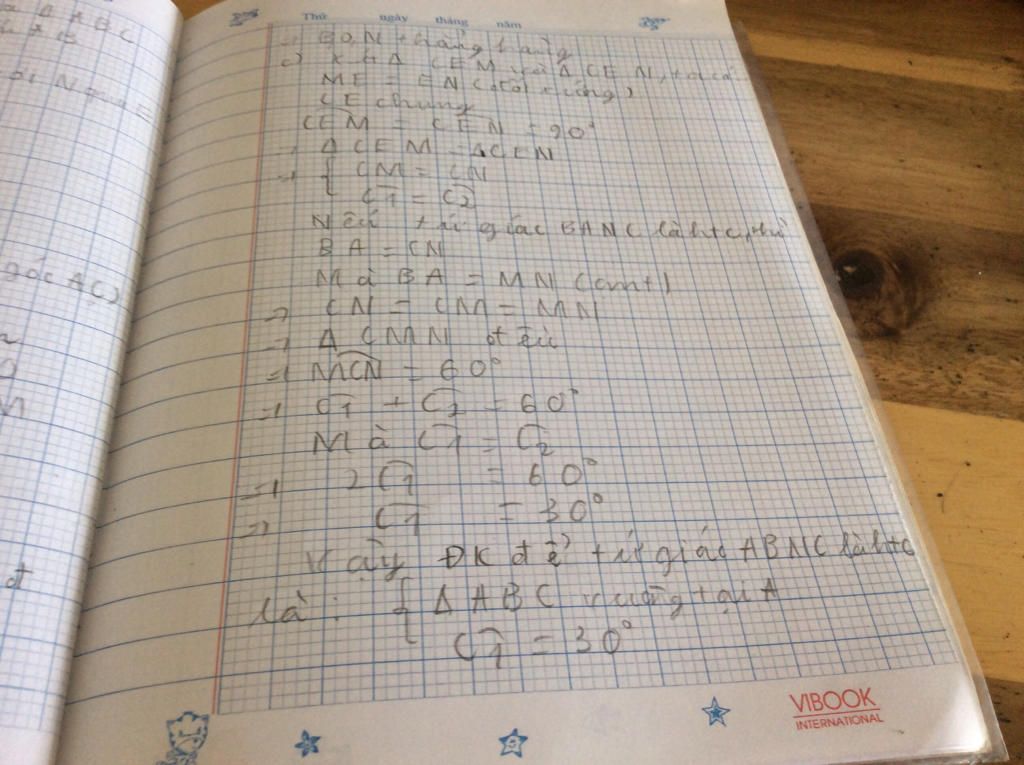 Thứ ngày tháng năm
=> B, O, N thẳng hàng
c) Xét Δ CEM và Δ CEN, ta có
ME = EN (đối xứng)
CE chung
CEM = CEN = 90°
=> Δ CEM = ΔCEN
=> { CM = CN
C1 = C2
Nếu tứ giác BANC là htc, thì
BA = CN
Mà BA = MN (cmt)
=> CN = CM = MN
=> Δ CMN đều
=> MCN = 60°
=> C1 + C2 = 60°
Mà C1 = C2
=> 2C1 = 60°
=> C1 = 30°
Vậy ĐK để tứ giác ABNC là htc
là: { Δ ABC vuông tại A
C1 = 30°
VIBOOK
INTERNATIONAL
Δ ABC
góc AC)
đ